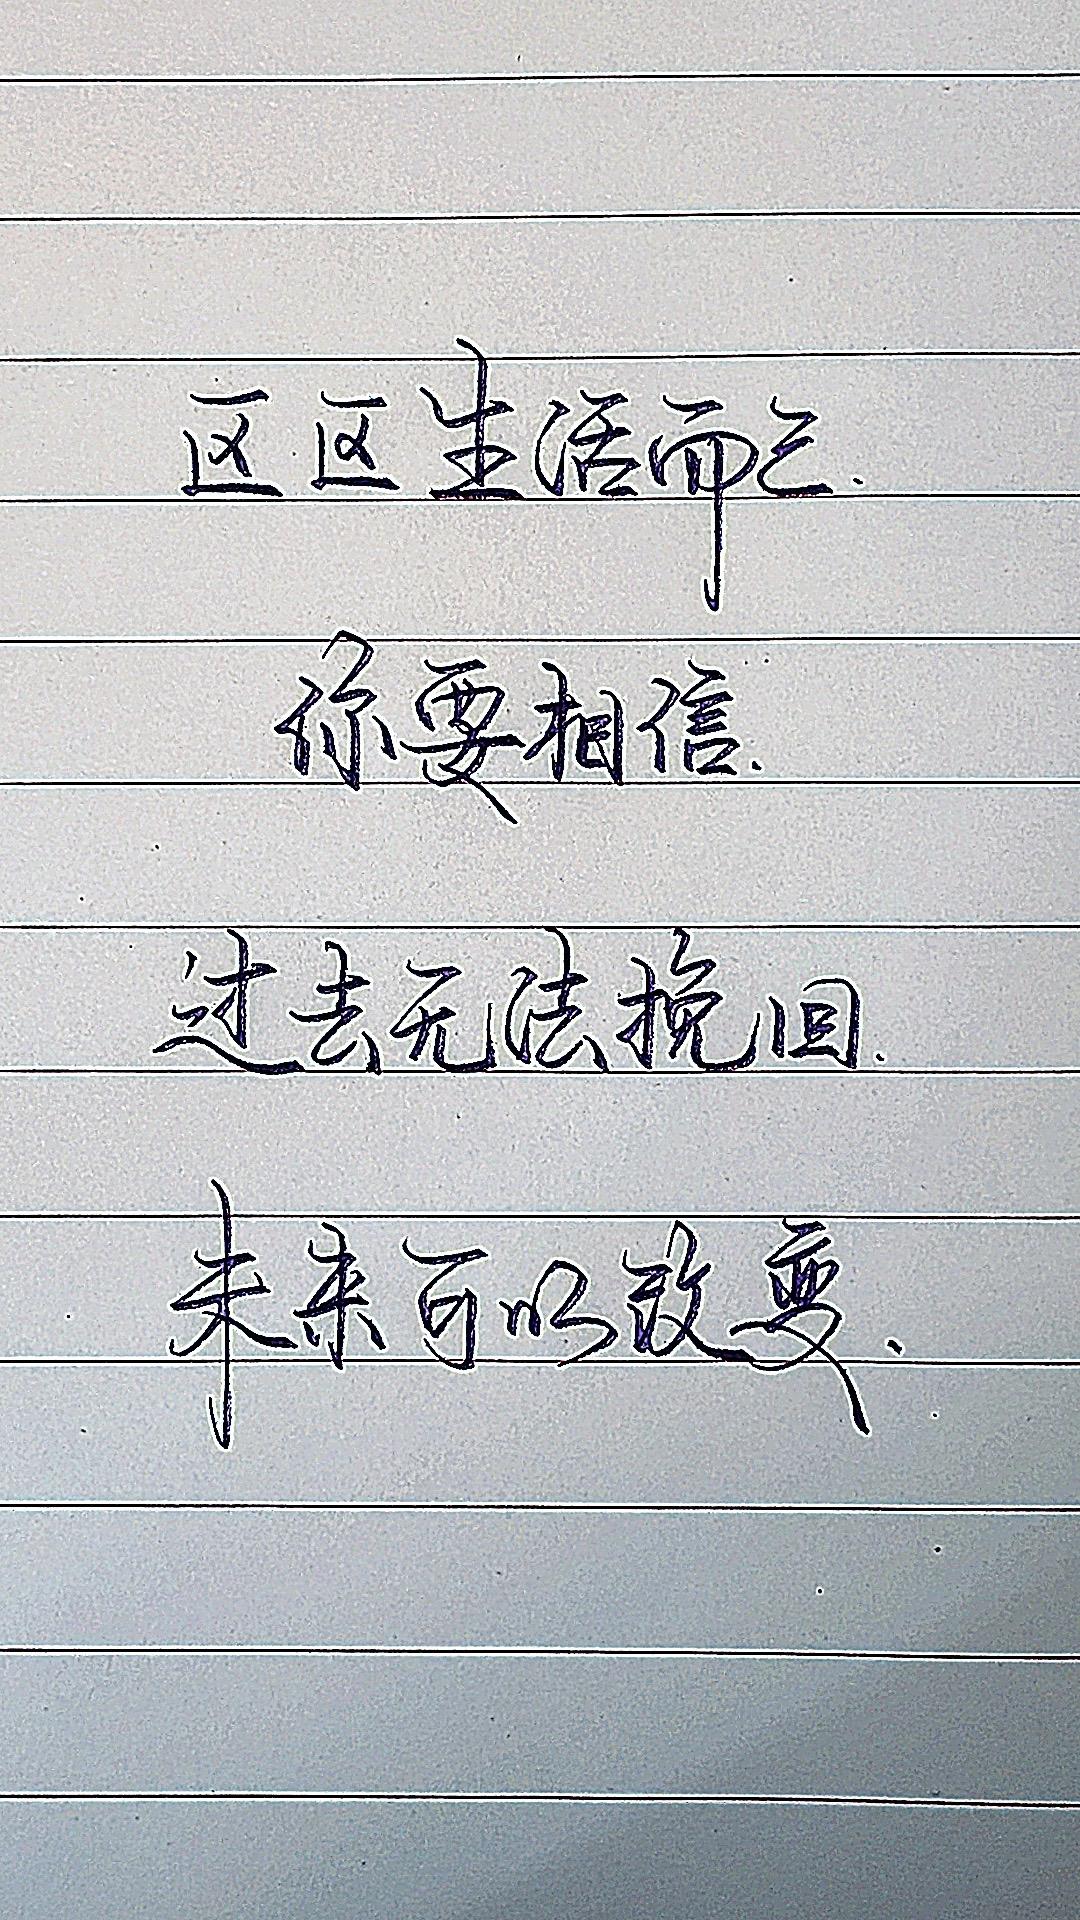 区区生活而已.
你要相信.
过去无法挽回.
未来可以改变.